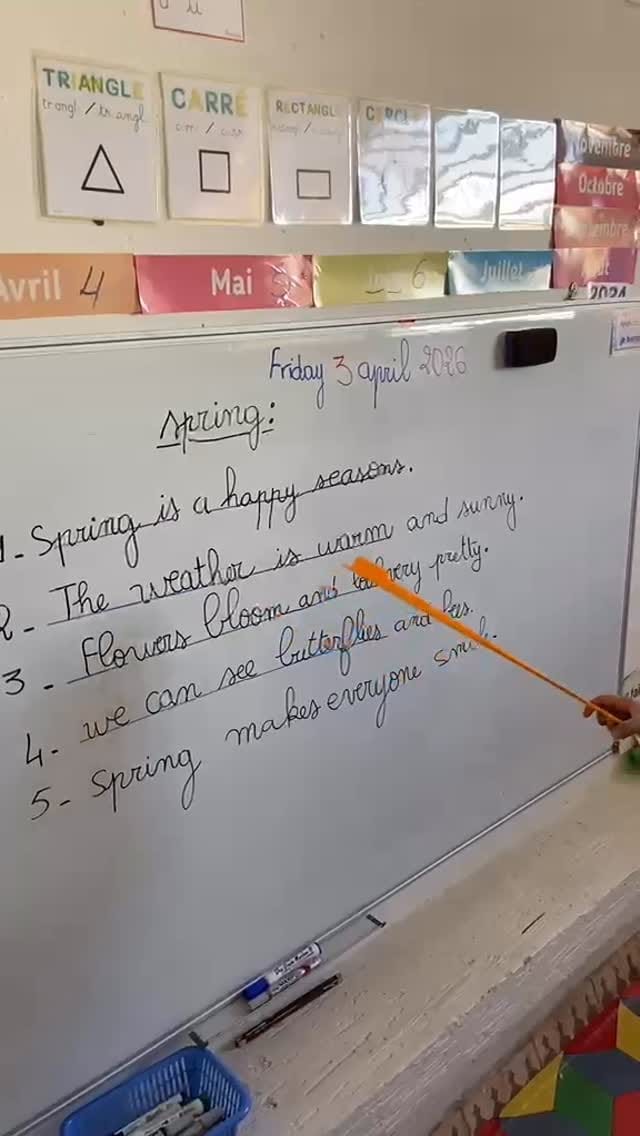 TRIANGLE
CARRÉ
RECTANGLE
CERCLE
Novembre
Octobre
Avril 4
Mai
6
Juillet
2024
Friday 3 april 2026
Spring:
1- Spring is a happy seasons.
2- The weather is warm and sunny.
3- Flowers bloom and very pretty.
4- we can see butterflies and bees.
5- Spring makes everyone